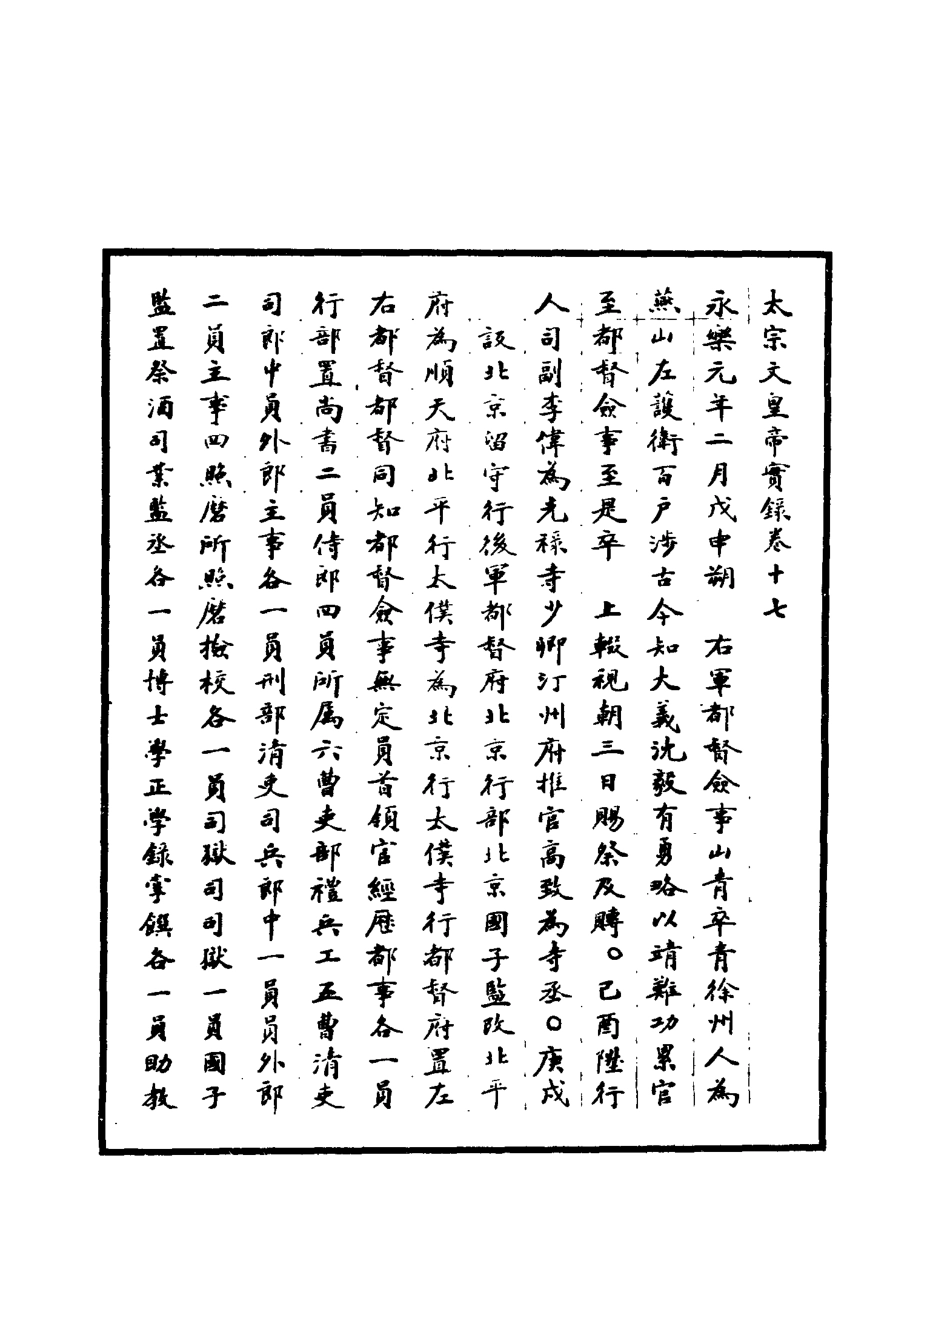 太宗文皇帝實錄卷十七
永樂元年二月戊申朔　右軍都督僉事山青卒青徐州人為
燕山左護衛百戶涉古今知大義沈毅有勇略以靖難功累官
至都督僉事至是卒　上輟視朝三日賜祭及賻○己酉陞行
人司副李偉為光祿寺少卿汀州府推官高致為寺丞○庚戌
設北京留守行後軍都督府北京行部北京國子監改北平
府為順天府北平行太僕寺為北京行太僕寺行都督府置左
右都督都督同知都督僉事無定員首領官經歷都事各一員
行部置尚書二員侍郎四員所属六曹吏部禮兵工五曹清吏
司郎中員外郎主事各一員刑部清吏司兵郎中一員員外郎
二員主事四照磨所照磨撿校各一員司獄司司獄一員國子
監置祭酒司業監丞各一員博士學正學錄掌饌各一員助教